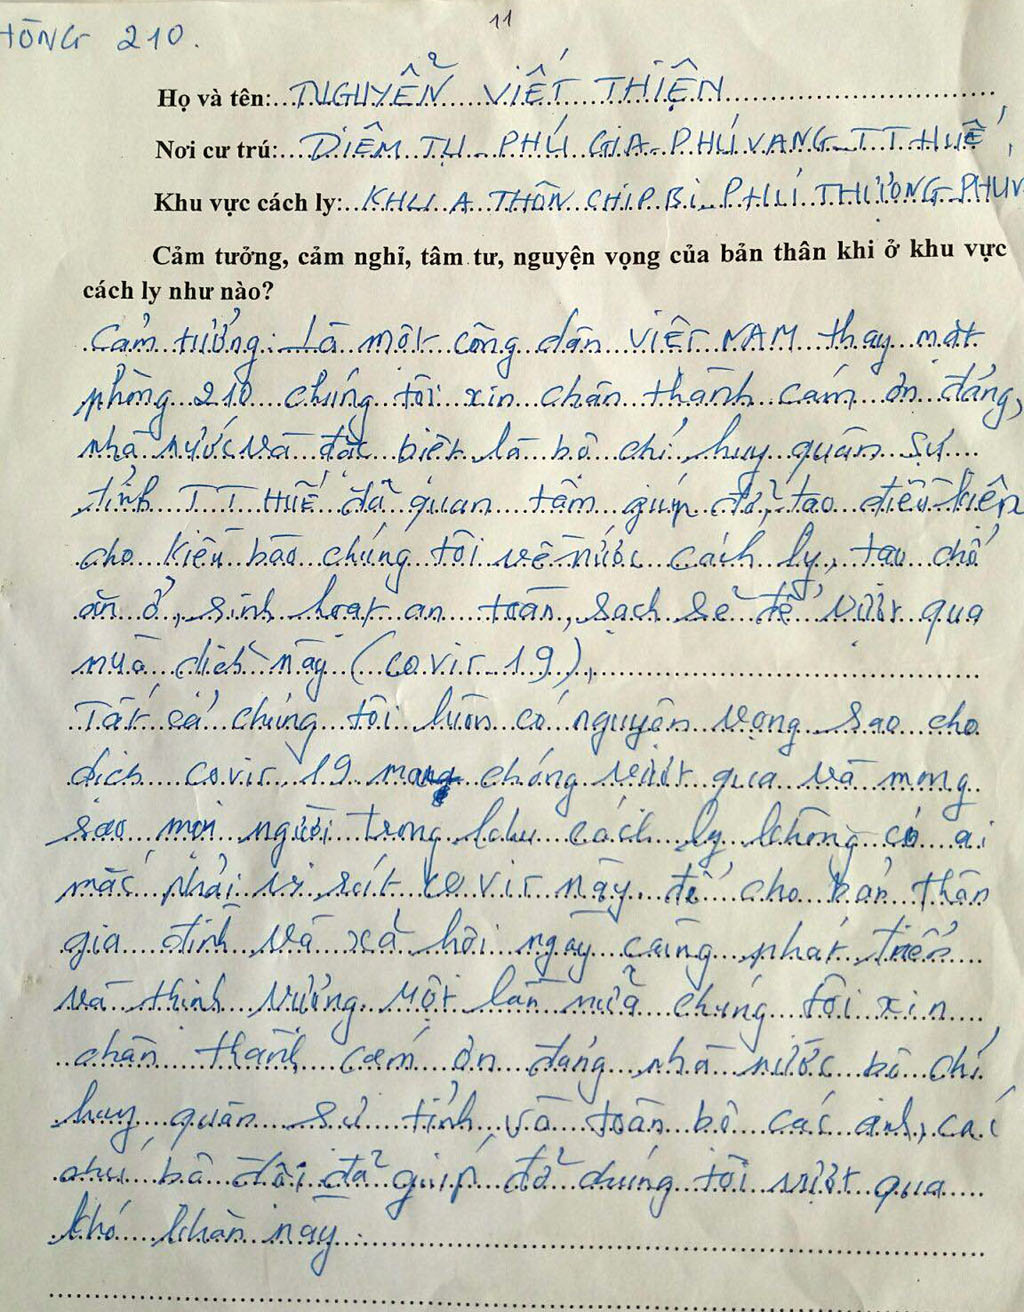 11
HÒNG 210.
Họ và tên: NGUYỄN VIẾT THIỆN
Nơi cư trú: DIÊM TỤ - PHÚ GIA - PHÚ VANG - TT HUẾ,
Khu vực cách ly: KHU A THÔN CHIP BI - PHÚ THƯỢNG - PHÚ V
Cảm tưởng, cảm nghỉ, tâm tư, nguyện vọng của bản thân khi ở khu vực
cách ly như nào?
Cảm tưởng: Là một công dân VIỆT NAM thay mặt
phòng 210 chúng tôi xin chân thành cám ơn đảng,
nhà nước và đặc biệt là bộ chỉ huy quân sự
tỉnh TT HUẾ đã quan tâm giúp đỡ, tạo điều kiện
cho kiều bào chúng tôi về nước cách ly, tạo chỗ
ăn ở, sinh hoạt an toàn, sạch sẽ để vượt qua
mùa dịch này (covir 19),
Tất cả chúng tôi luôn có nguyện vọng sao cho
dịch covir 19 mang chóng vượt qua và mong
sao mọi người trong khu cách ly không có ai
mắc phải vi rút covir này. để cho bản thân
gia đình và xã hội ngày càng phát triển
và thịnh vượng. Một lần nữa chúng tôi xin
chân thành cám ơn đảng nhà nước bộ chỉ
huy quân sự tỉnh và toàn bộ các anh, các
chú bộ đội đã giúp đỡ chúng tôi vượt qua
khó khăn này.